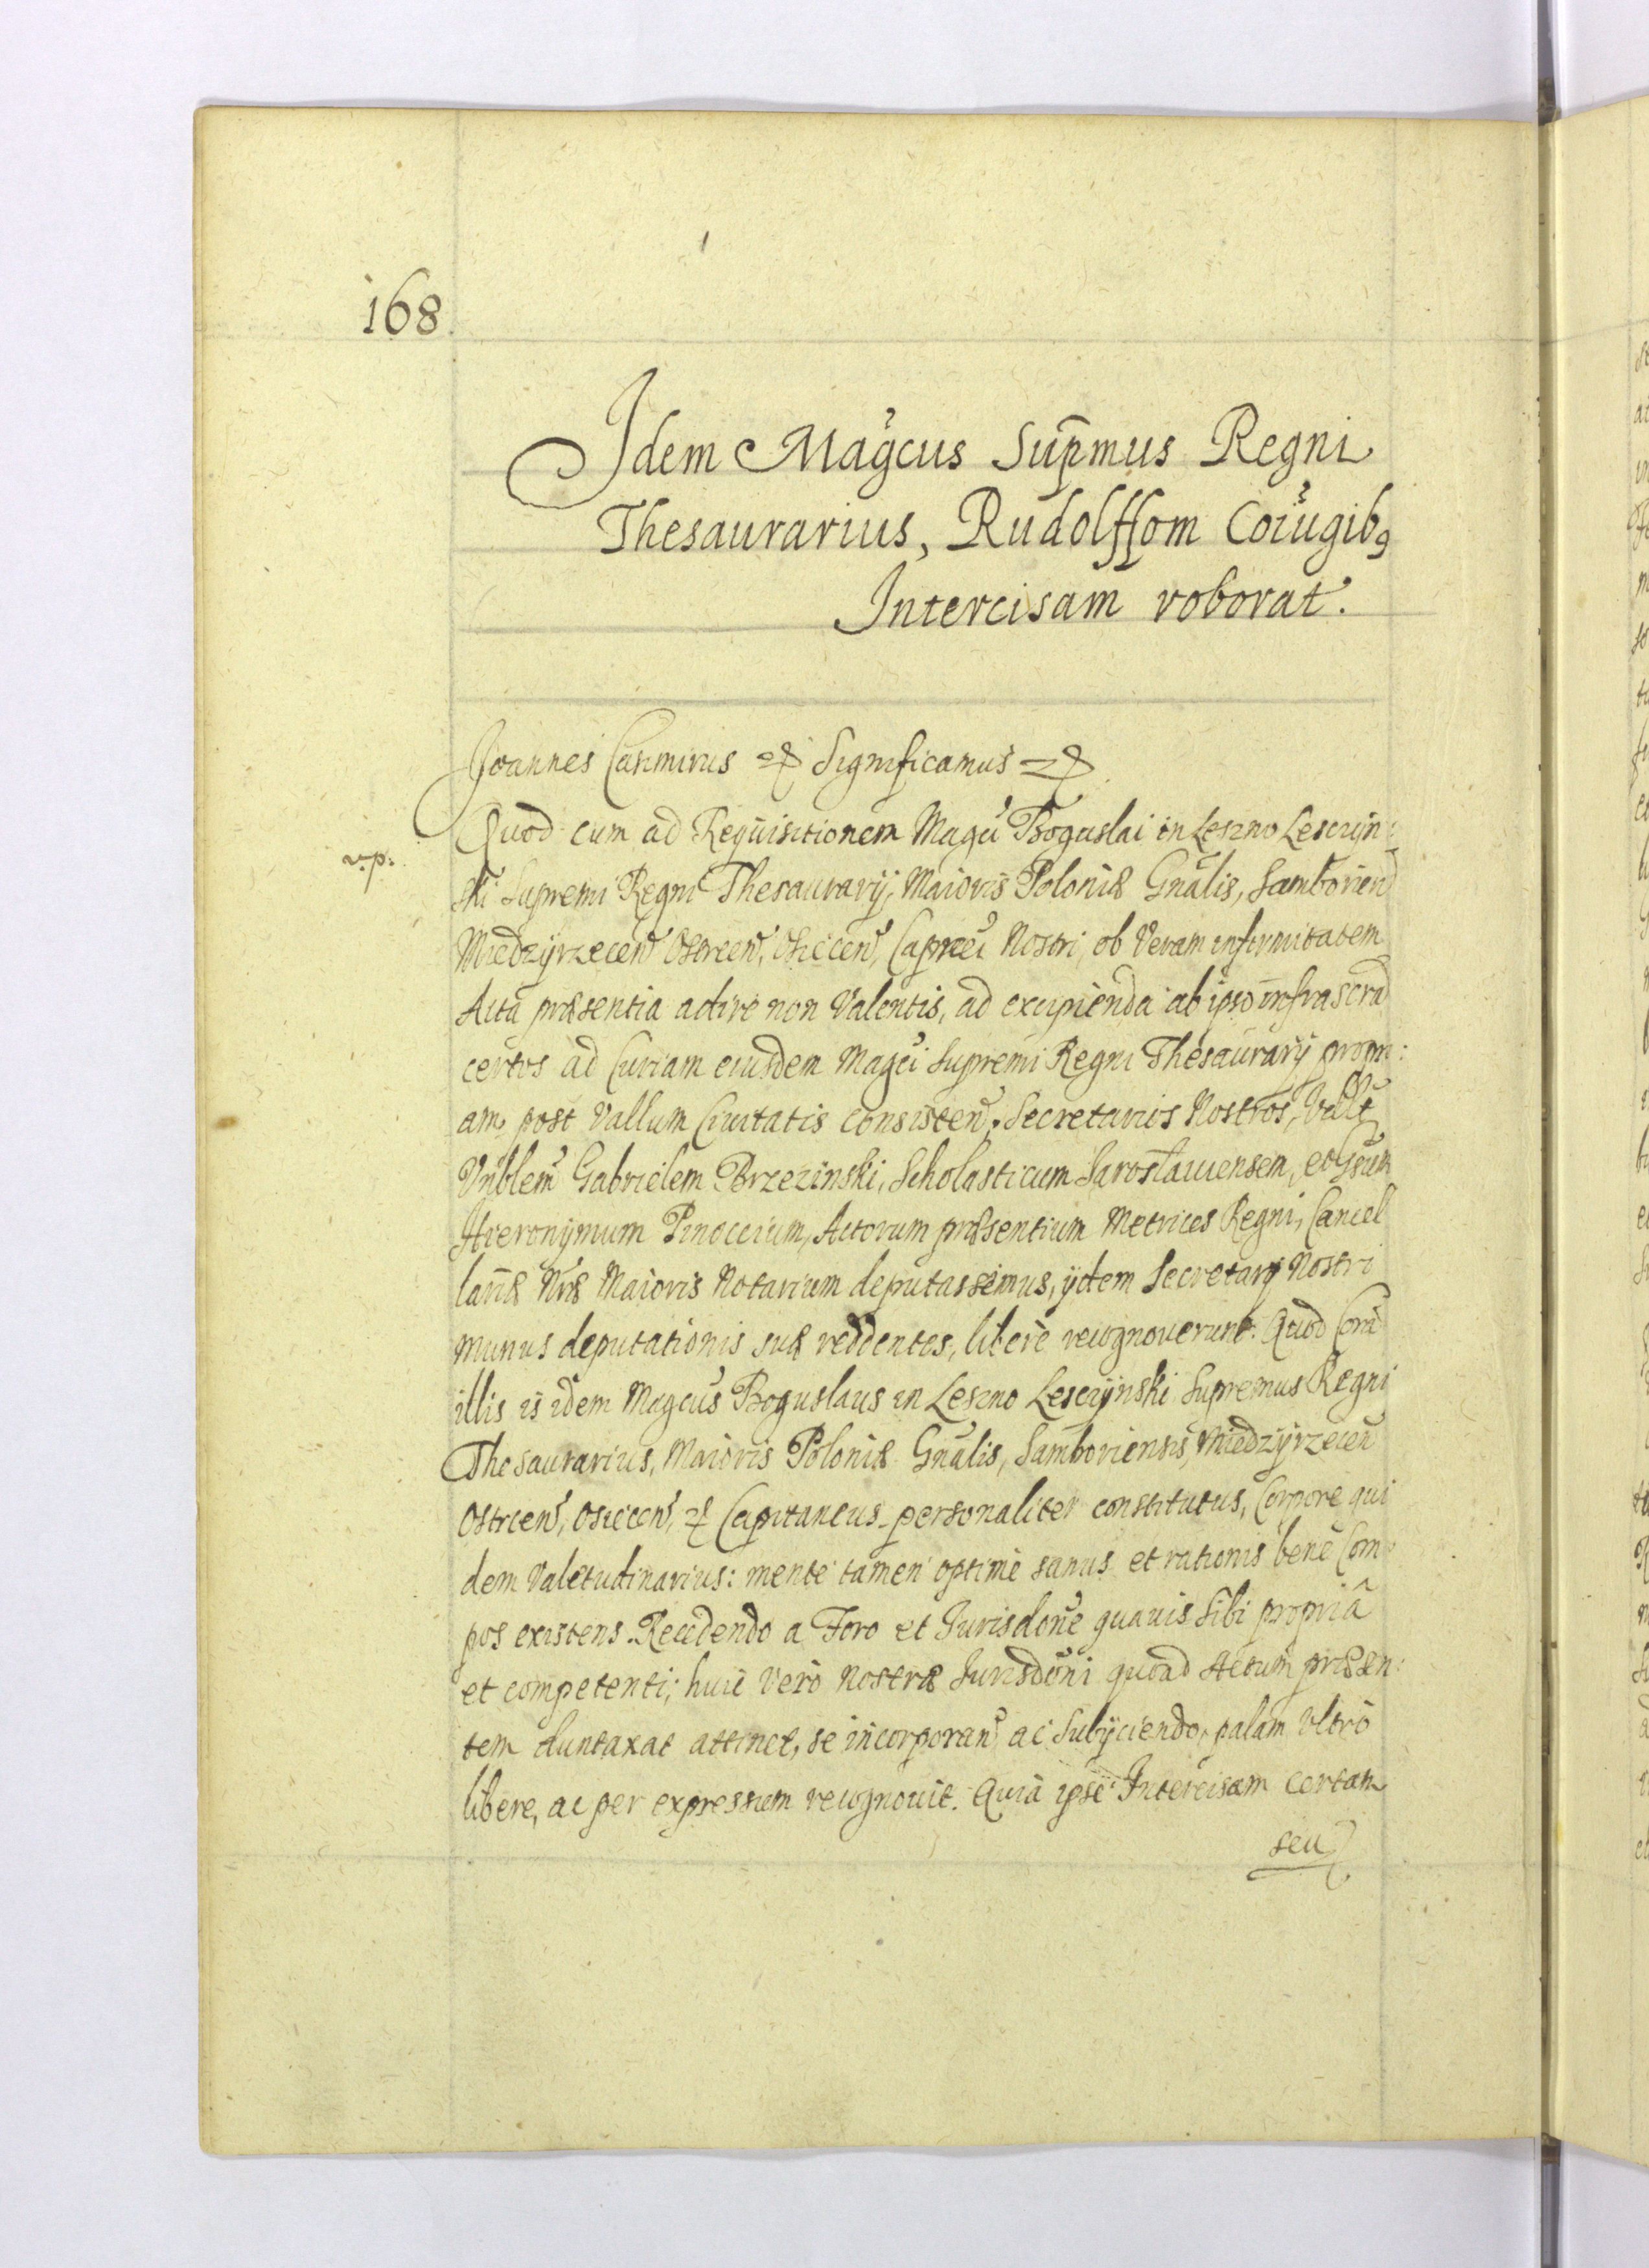 168
Idem Magcus Supmus Regni
Thesaurarius, Rudolffom Coiugibq
Intercisam roborat.
Joannes Casimirus etc Significamus etc
Quod cum ad Requisitionem Magci Boguslai in Leszno Lesczyn:
r.p:
ski Supremi Regni Thesaurarij, Maioris Poloniæ Gnalis, Samborien
Miedzyrzecen Ostrcen, Osiecen, Capnei Nostri, ob Veram infirmitatem
Acta præsentia adire non Valentis, ad excipienda ab ipso infrascra
certos ad Curiam eiusdem Magci Supremi Regni Thesaurarij propri:
am post Vallum Ciuitatis consisten. Secretarios Nostros,
Vnblem Gabrielem Brzezinski, Scholasticum Jaroslauiensem, et Gsum
Hieronymum Pinoccium, Actorum præsentium Metrices Regni, Cancel
lariæ Nræ Maioris Notarium deputassemus, ijdem Secretarij Nostri
munus deputationis suæ reddentes, liberè recognouerunt. Quod Corã
illis is idem Magcus Boguslaus in Leszno Lesczynski Supremus Regni
Thesaurarius, Maioris Poloniæ Gnalis, Samboriensis, Miedzyrzecen
Ostrcen, Osiecen, etc Capitaneus personaliter constitutus, Corpore qui
dem Valetudinarius: mente tamen optimè sanus et rationis benè Com
pos existens. Recedendo a Foro et Jurisdone quauis Sibi propriâ
et competenti; huic Verò Nostræ Jurisdoni quoad Actum præsen:
tem duntaxat attinet, se incorporan ac Subijciendo, palam Vltrò
libere, ac per expressum recognouit. Quia ipse Intercisam certam
seu